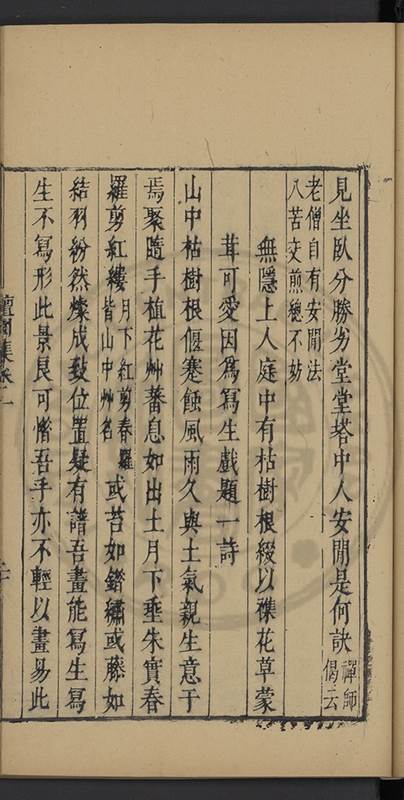 見坐臥分勝劣堂堂塔中人安閒是何訣禪師偈云
老僧自有安閒法
八苦交煎總不妨
無隱上人庭中有枯樹根綴以襍花草蒙
茸可愛因為寫生戲題一詩
山中枯樹根偃蹇蝕風雨久與土氣親生意于
焉聚隨手植花艸蕃息如出土月下垂朱實春
羅剪紅縷月下紅剪春羅皆山中艸名或苔如錯繡或藤如
結羽紛然燦成致位置疑有譜吾畫能寫生寫
生不寫形此景良可惜吾手亦不輕以畫易此